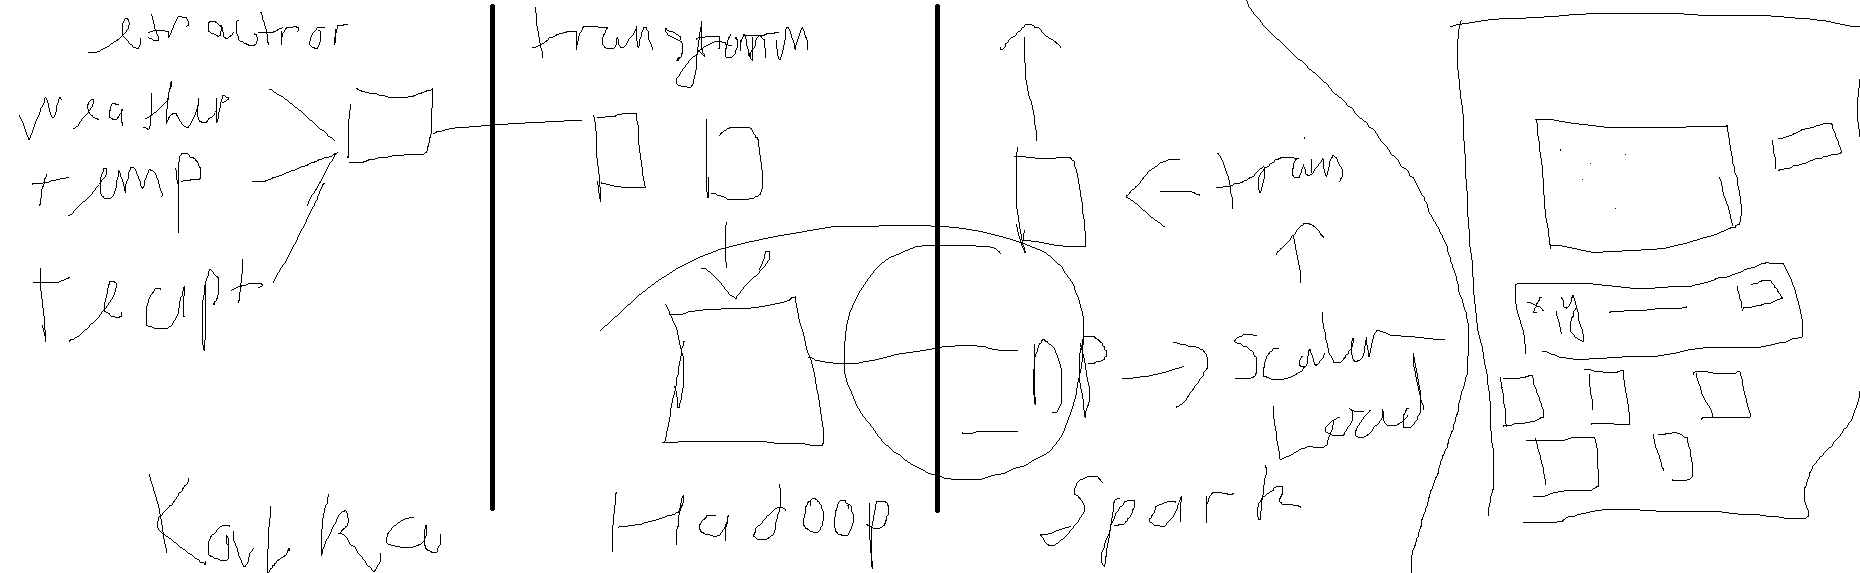 etractror
weather
temp
Kafka
transform
Hadoop
train
DP
scaler
Load
Spark
x, y